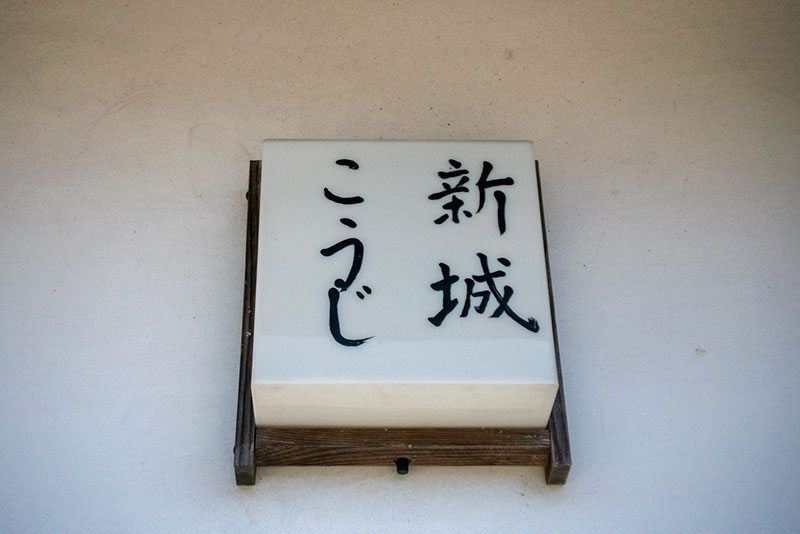 新城
こうじ